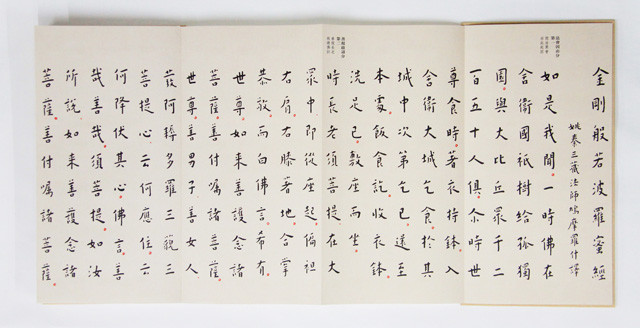 金剛般若波羅蜜經
姚秦三藏法師鳩摩羅什譯
法會因由分
第一
如是我聞一時佛在
舍衛國祇樹給孤獨
園與大比丘眾千二
百五十人俱尒時世
尊食時著衣持鉢入
舍衛大城乞食於其
城中次第乞已還至
本處飯食訖收衣鉢
洗足已敷座而坐
善現啟請分
第二
時長老須菩提在大
眾中即從座起偏袒
右肩右膝著地合掌
恭敬而白佛言希有
世尊如來善護念諸
菩薩善付囑諸菩薩
世尊善男子善女人
發阿耨多羅三藐三
菩提心云何應住云
何降伏其心佛言善
哉善哉須菩提如汝
所說如來善護念諸
菩薩善付囑諸菩薩